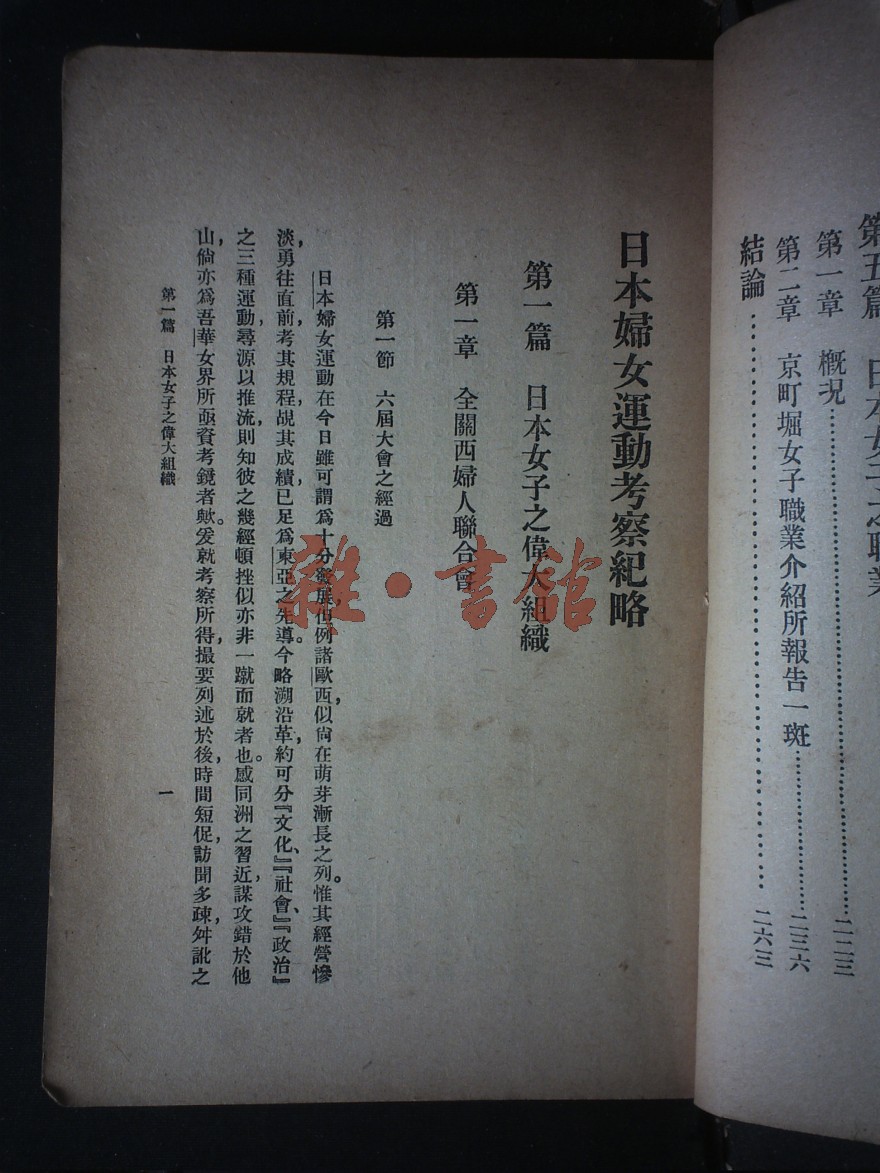 第五篇 日本女子之職業
第一章 概況……………………二二三
第二章 京町堀女子職業介紹所報告一斑……………………二三六
結論……………………二六三
日本婦女運動考察紀略
第一篇 日本女子之偉大組織
第一章 全關西婦人聯合會
第一節 六屆大會之經過
日本婦女運動在今日雖可謂爲十分發展,但例諸歐西,似尙在萌芽漸長之列。惟其經營慘
淡,勇往直前,考其規程,覘其成績,已足爲東亞之先導。今略溯沿革,約可分『文化』、『社會』、『政治』
之三種運動,尋源以推流,則知彼之幾經頓挫,似亦非一蹴而就者也。感同洲之習近,謀攻錯於他
山,倘亦爲吾華女界所亟資考鏡者歟。爰就考察所得,撮要列述於後,時間短促,訪聞多疎,舛訛之
第一篇 日本女子之偉大組織
一
雜·書館